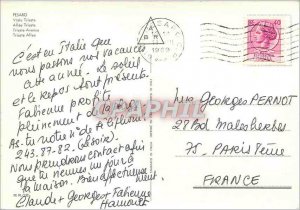 PESARO
Viale Trieste
Allée Trieste
Trieste Avenue
Trieste Allee
C'est en Italie que
nous passons nos vacances
cette année. Le soleil
et le repos sont présents.
Fabienne profite
pleinement
As-tu notre n° de téléphone
243.87-82.
Nous prendrons contact afin
que tu viennes un jour à
la maison. Bien affectueusement.
Claude - Georges - Fabienne
Hamoult
Georges PERNOT
27 Bd Malesherbes
75. PARIS 8ème
FRANCE